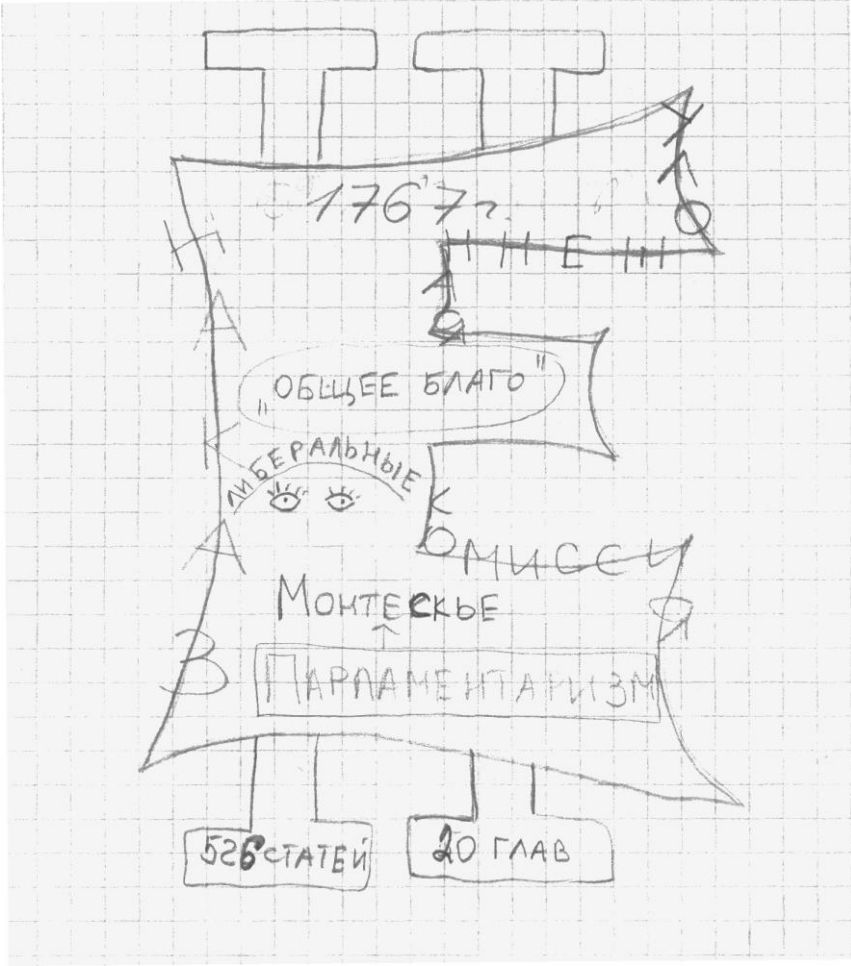 1767г.
НАКАЗ
УЛОЖЕННАЯ
„ОБЩЕЕ БЛАГО"
ЛИБЕРАЛЬНЫЕ
КОМИССИЯ
МОНТЕСКЬЕ
ПАРЛАМЕНТАРИЗМ
526 СТАТЕЙ
20 ГЛАВ